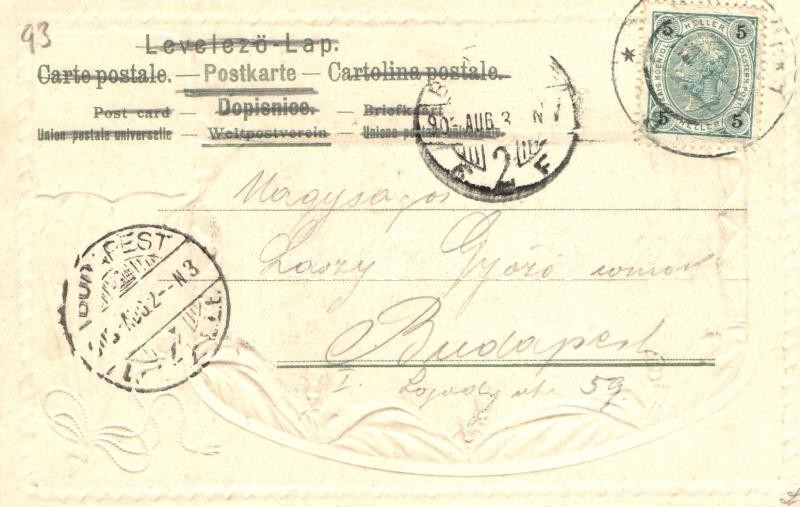 93
Levelező-Lap.
Carte postale. — Postkarte — Cartolina postale.
Post card — Dopisnice. — Briefkaart
Union postale universelle — Weltpostverein — Unione postale
5 HELLER 5
5 HELLER 5
905 AUG 3 N
2
Nagyságos
Laszy Győző
Budapest
I. 59.
BUDAPEST
905 AUG 2 - N 3